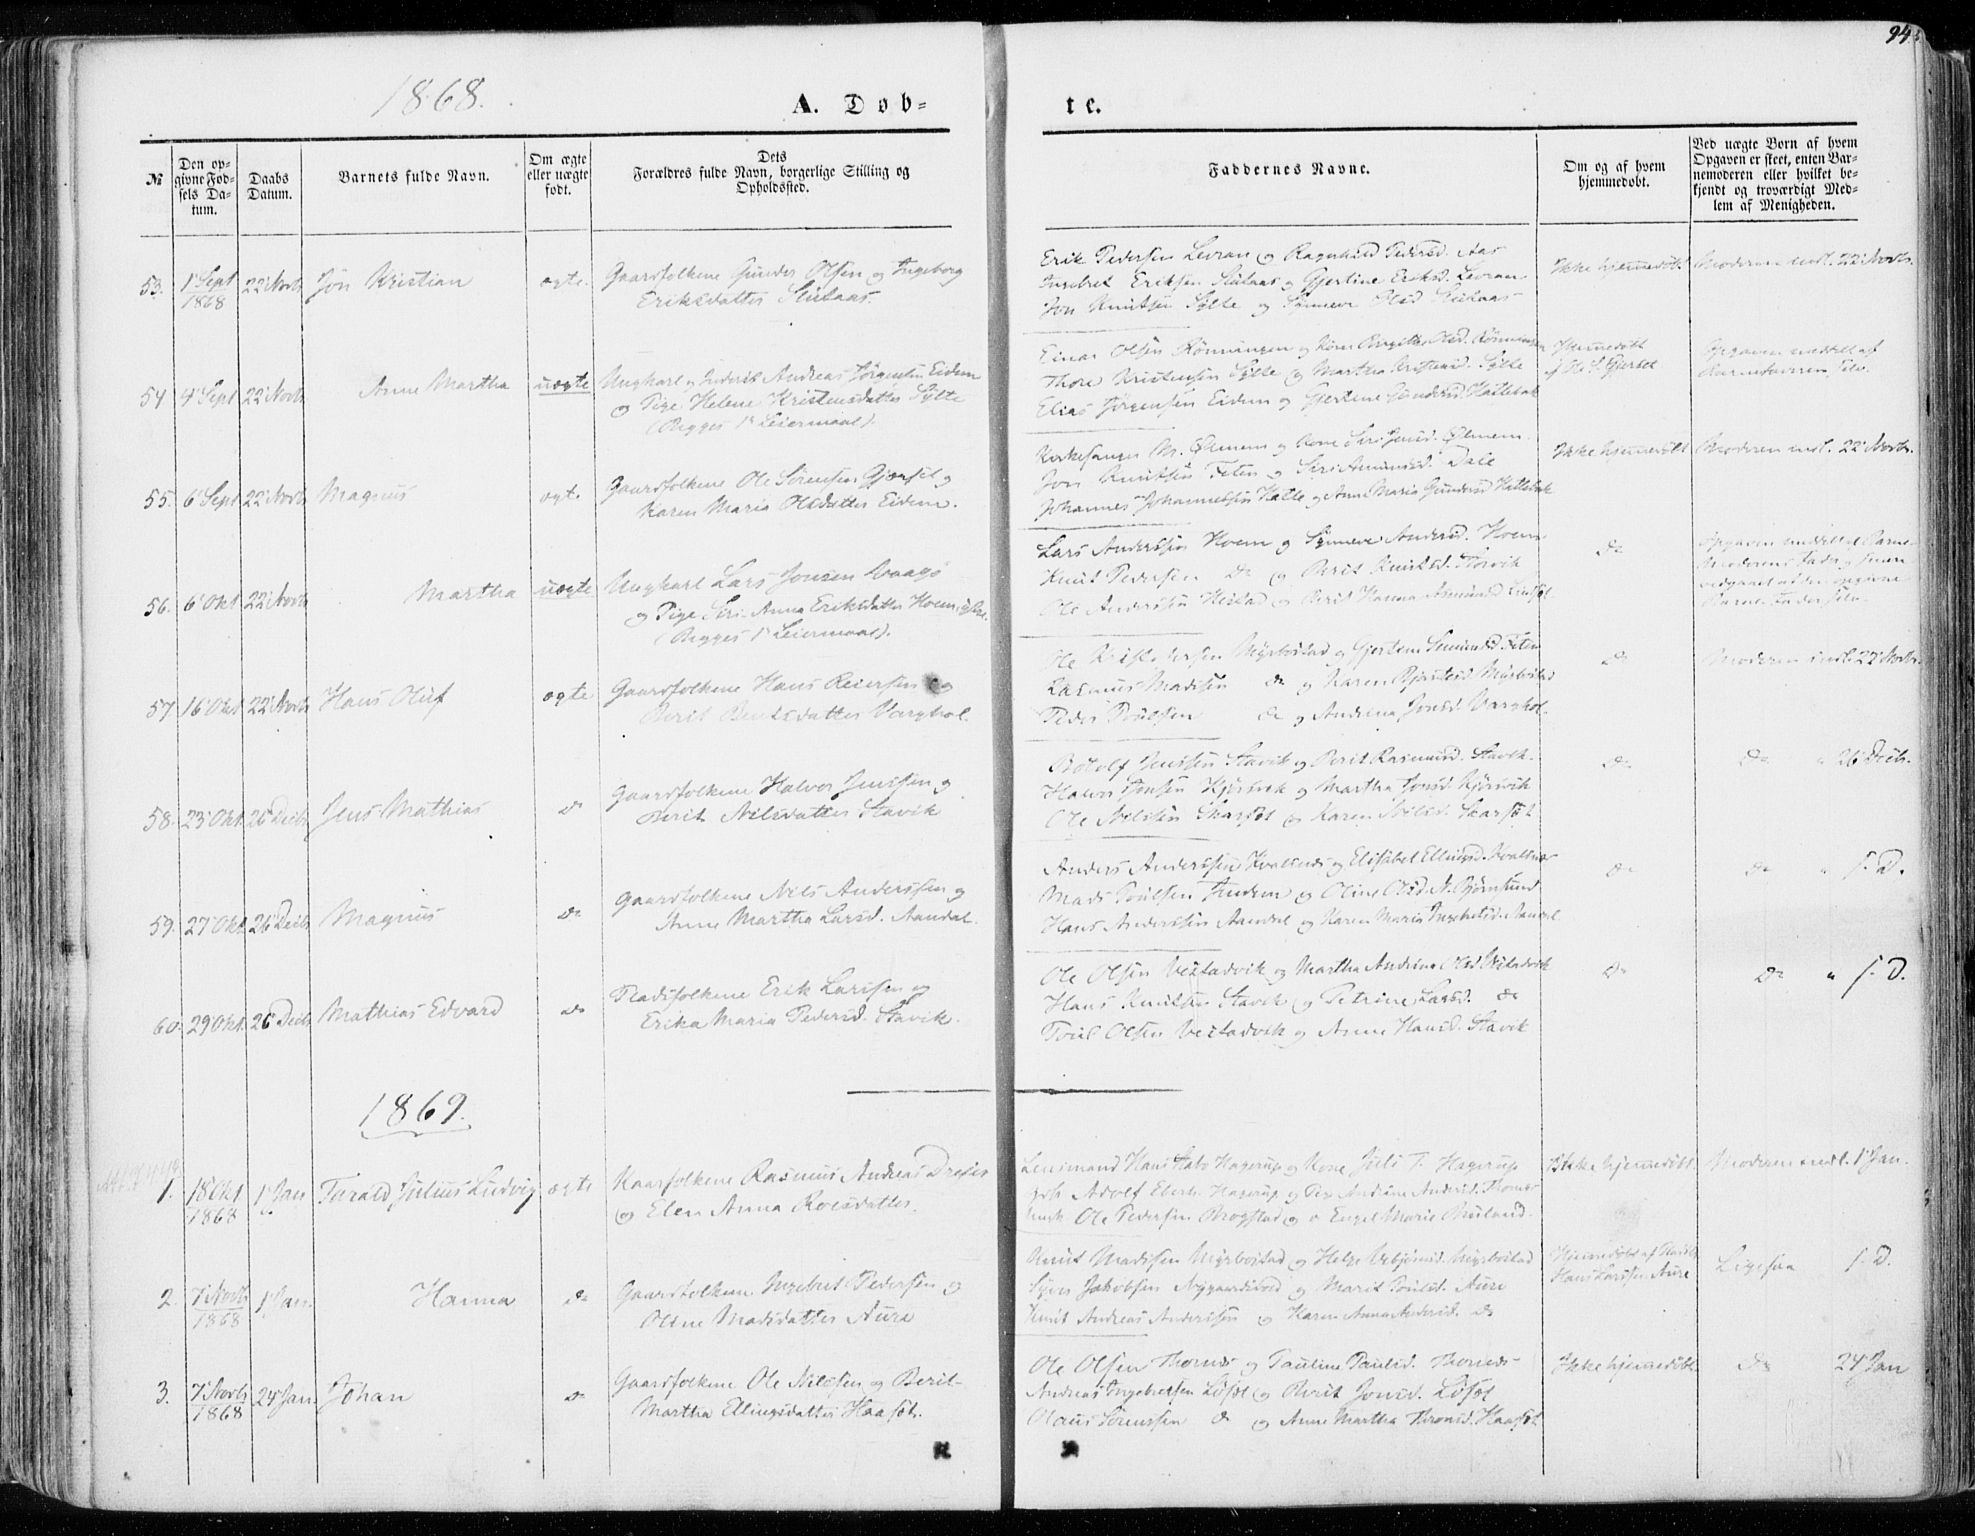 94
1868.
A. Døb-
te.
№
Den op-
givne Fød-
sels Da-
tum.
Daabs
Datum.
Barnets fulde Navn.
Om ægte
eller uægte
født.
Dets
Forældres fulde Navn, borgerlige Stilling og
Opholdssted.
Faddernes Navne.
Om og af hvem
hjemmedøbt.
Ved uægte Børn af hvem
Opgaven er skeet, enten Bar-
nemoderen eller hvilket be-
kjendt og troværdigt Med-
lem af Menigheden.
53. 1 Sept 1868 22 Novb Jøn Kristian ægte. Gaardfolkene Gunder Olsen og Ingeborg
Eriksdatter Slutaas.
Erik Pedersen Levran og Ragnhild Pedersd. Aas
Ingebret Eriksen Slutaas og Gjertine Eriksd. Levran
Jon Knutsen Sylte og Synneve Olsd Slutaas
Ikke hjemmedøbt Moderen indl. 22 Novb.
54 4 Sept 22 Novb Anne Martha uægte Ungkarl og Inderst Andreas Jørgensen Eidem
og Pige Helene Kristensdatter Sylte
(Begges 1ste Leiermaal).
Einar Olsen Rønningen og Kone Birgitte Olsd. Rønningen
Thore Kristensen Sylte og Martha Kristensd. Sylte
Elias Jørgensen Eidem og Gjertine Gundersd Hattebak
Hjemmedøbt
af Gjerset
Opgaven meddelt af
Barnefaderen selv.
55. 6 Sept 22 Novb Magnus ægte Gaardfolkene Ole Sørensen Gjerset og
Karen Maria Olsdatter Eidem.
Kirkesanger M. Ølmem og Kone Siri Jensd. Ølmem.
Jon Knutsen Feten og Siri Amundsd. Dale
Johannes Johannessen Hatle og Anne Maria Gundersd Hattebak
Ikke hjemmedøbt Moderen indl. 22 Novb.
56. 6 Okt 22 Novb Martha uægte Ungkarl Lars Jonsen Vaagø
og Pige Siri Anna Eriksdatter Hoem
(Begges 1ste Leiermaal).
Lars Anderssen Hoem og Synneve Andersd. Hoem
Knut Pedersen do og Berit Knutsd. Storvik
Ole Anderssen Hestad og Berit Hanna Amundsd
do
Opgaven meddelt af Barne-
Moderens Fader og senere
vedgaaet af den opgivne
Barnefader selv.
57 16 Okt 22 Novb Hans Oluf ægte Gaardfolkene Hans Reiersen og
Berit Bentsdatter Varghol.
Ole Kristophersen Myrbostad og Gjertine Feten
Rasmus Madsen do og Karen Myrbostad
Peder Poulsen do og Andrina Jonsd. Varghol.
do Moderen indl. 22 Novb.
58. 23 Okt. 26 Decb Jens Mathias do Gaardfolkene Halvor Jenssen og
Berit Nilsdatter Stavik
Botolf Jenssen Stavik og Berit Rasmusd. Stavik.
Halvor Jonsen Kjørsvik og Martha Jonsd. Kjørsvik
Ole Nilssen Skarset og Karen Nilsd. Skarset
do do " 26 Decb.
59. 27 Okt. 26 Decb Magnus do Gaardfolkene Nils Anderssen og
Anne Martha Larsd. Aandal.
Anders Anderssen Hvalsnes og Elisabet Ellingsd. Hvalsnæs
Mads Poulsen Indrem og Oline Olsd. N. Bjørnsund
Hans Anderssen Aandal og Karen Maria Ingebretsd. Aandal
do do " s. D.
60. 29 Okt. 26 Decb Mathias Edvard do Pladsfolkene Erik Larssen og
Erika Maria Pedersd. Stavik.
Ole Olsen Vestadvik og Martha Andrina Olsd Vestadvik
Hans Knutsen Stavik og Petrine Larsd. do
Poul Olsen Vestadvik og Anne Hansd. Stavik
do do " s. D.
1869.
1. 18 Okt 1868 1 Jan Tarald Julius Ludvig ægte Kaarfolkene Rasmus Andreas
og Elen Anna Roesdatter.
Lensmand Hans Hagerup og Kone Juli T. Hagerup
Adolf Eberh. Hagerup og Pige Andrine Andersd. Thornes
Ole Pedersen Brogstad og Engel Marie
Ikke hjemmedøbt. Moderen indl. 1 Jan.
2. 7 Novb 1868 1 Jan. Hanna do Gaardfolkene Ingebret Pedersen og
Oline Madsdatter Aure
Knut Madsen Myrbostad og Helge Myrbostad
Syver Jakobsen Nygaardsvold og Marit Poulsd. Aure
Knut Andreas Anderssen og Karen Anna Andersd. do
Hjemmedøbt af
Hans Larssen Aure
Ligesaa s. D.
3. 7 Novb 1868 24 Jan. Johan do Gaardfolkene Ole Nilssen og Berit-
Martha Ellingsdatter Haaset.
Ole Olsen Thornes og Pauline Paulsd. Thornes
Andreas Ingebretsen Løset og Berit Jonsd. Løset
Olaus Sørenssen do og Anne Martha Thronsd. Haaset
Ikke hjemmedøbt do 24 Jan